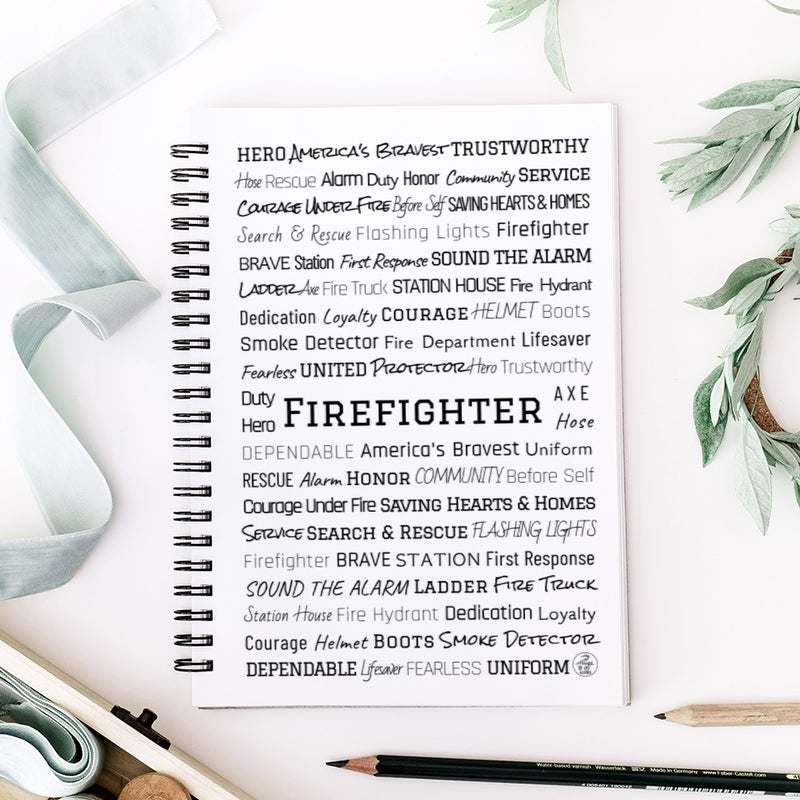 HERO AMERICA'S BRAVEST TRUSTWORTHY
Hose Rescue Alarm Duty Honor Community SERVICE
COURAGE UNDER FIRE Before Self SAVING HEARTS & HOMES
Search & Rescue Flashing Lights Firefighter
BRAVE Station First Response SOUND THE ALARM
LADDER Axe Fire Truck STATION HOUSE Fire Hydrant
Dedication Loyalty COURAGE HELMET Boots
Smoke Detector Fire Department Lifesaver
Fearless UNITED PROTECTOR Hero Trustworthy
Duty
Hero
FIREFIGHTER
AXE
Hose
DEPENDABLE America's Bravest Uniform
RESCUE Alarm HONOR COMMUNITY Before Self
Courage Under Fire SAVING HEARTS & HOMES
SERVICE SEARCH & RESCUE FLASHING LIGHTS
Firefighter BRAVE STATION First Response
SOUND THE ALARM LADDER FIRE TRUCK
Station House Fire Hydrant Dedication Loyalty
Courage Helmet BOOTS SMOKE DETECTOR
DEPENDABLE Lifesaver FEARLESS UNIFORM
Water-based varnish Wasserlack Made in Germany www.Faber-Castell.com